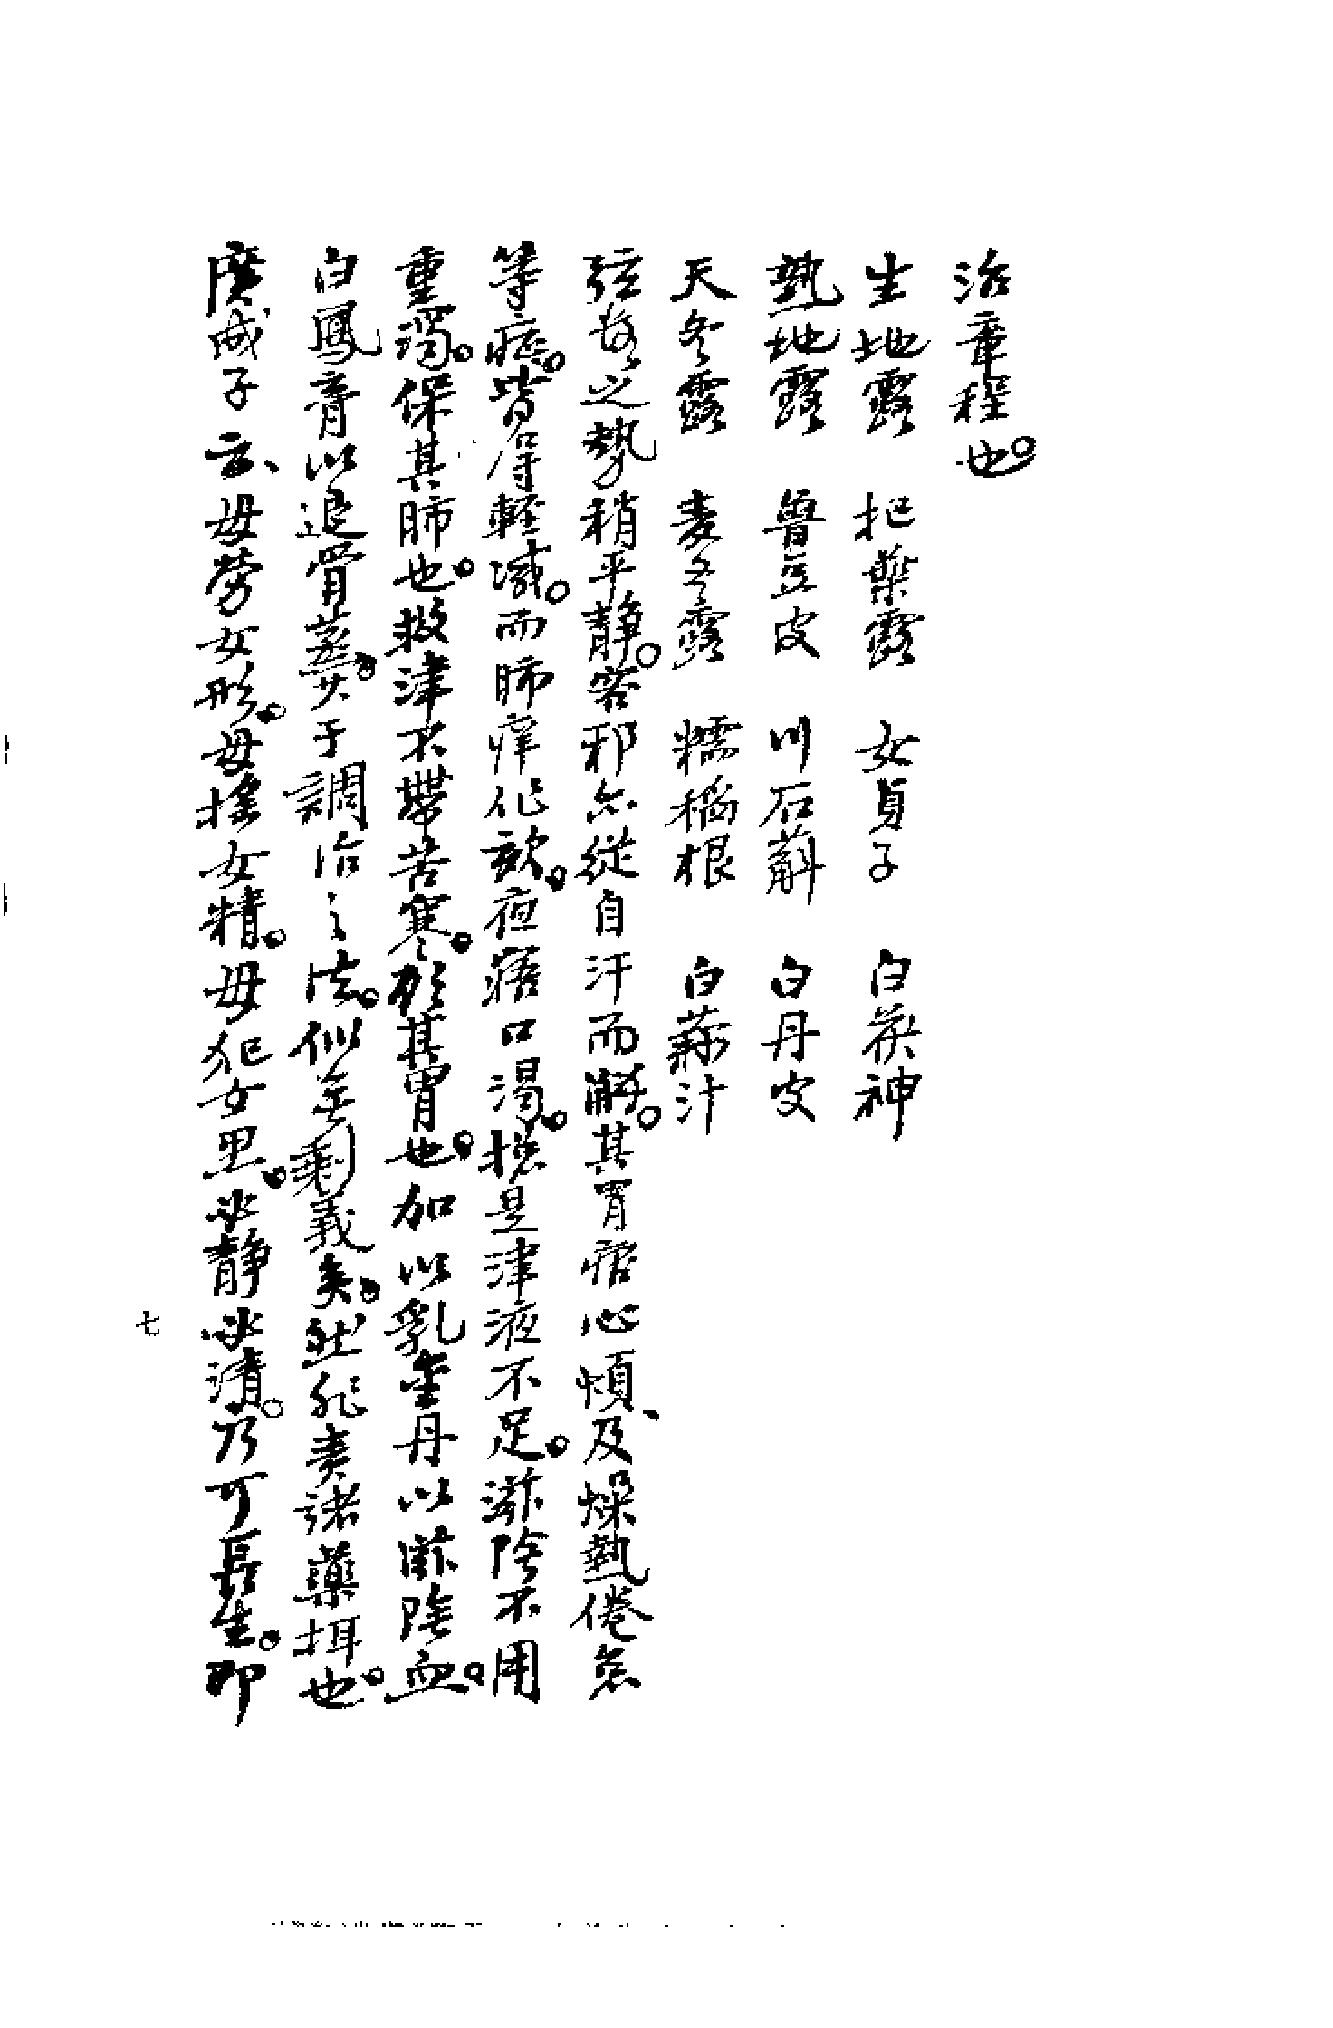 治章程也。
生地露　杞葉露　女貞子　白茯神
熟地露　魯豆皮　川石斛　白丹皮
天冬露　麦冬露　糯稻根　白蔴汁
弦數之勢稍平靜。客邪亦從自汗而解。其胃痞心煩、及燥熱倦怠
等症。皆得輕減。而肺痒作欬。夜寤口渴。揔是津液不足。滋陰不用
重濁。保其肺也。救津不帶苦寒。顧其胃也。加以乳金丹以滋陰血。
白鳳膏以追骨蒸。其于調治之法。似無剩義矣。然非責諸藥弭也。
廣成子云、毋勞女形。毋搖女精。毋犯女思。必靜必清。乃可長生。即
七